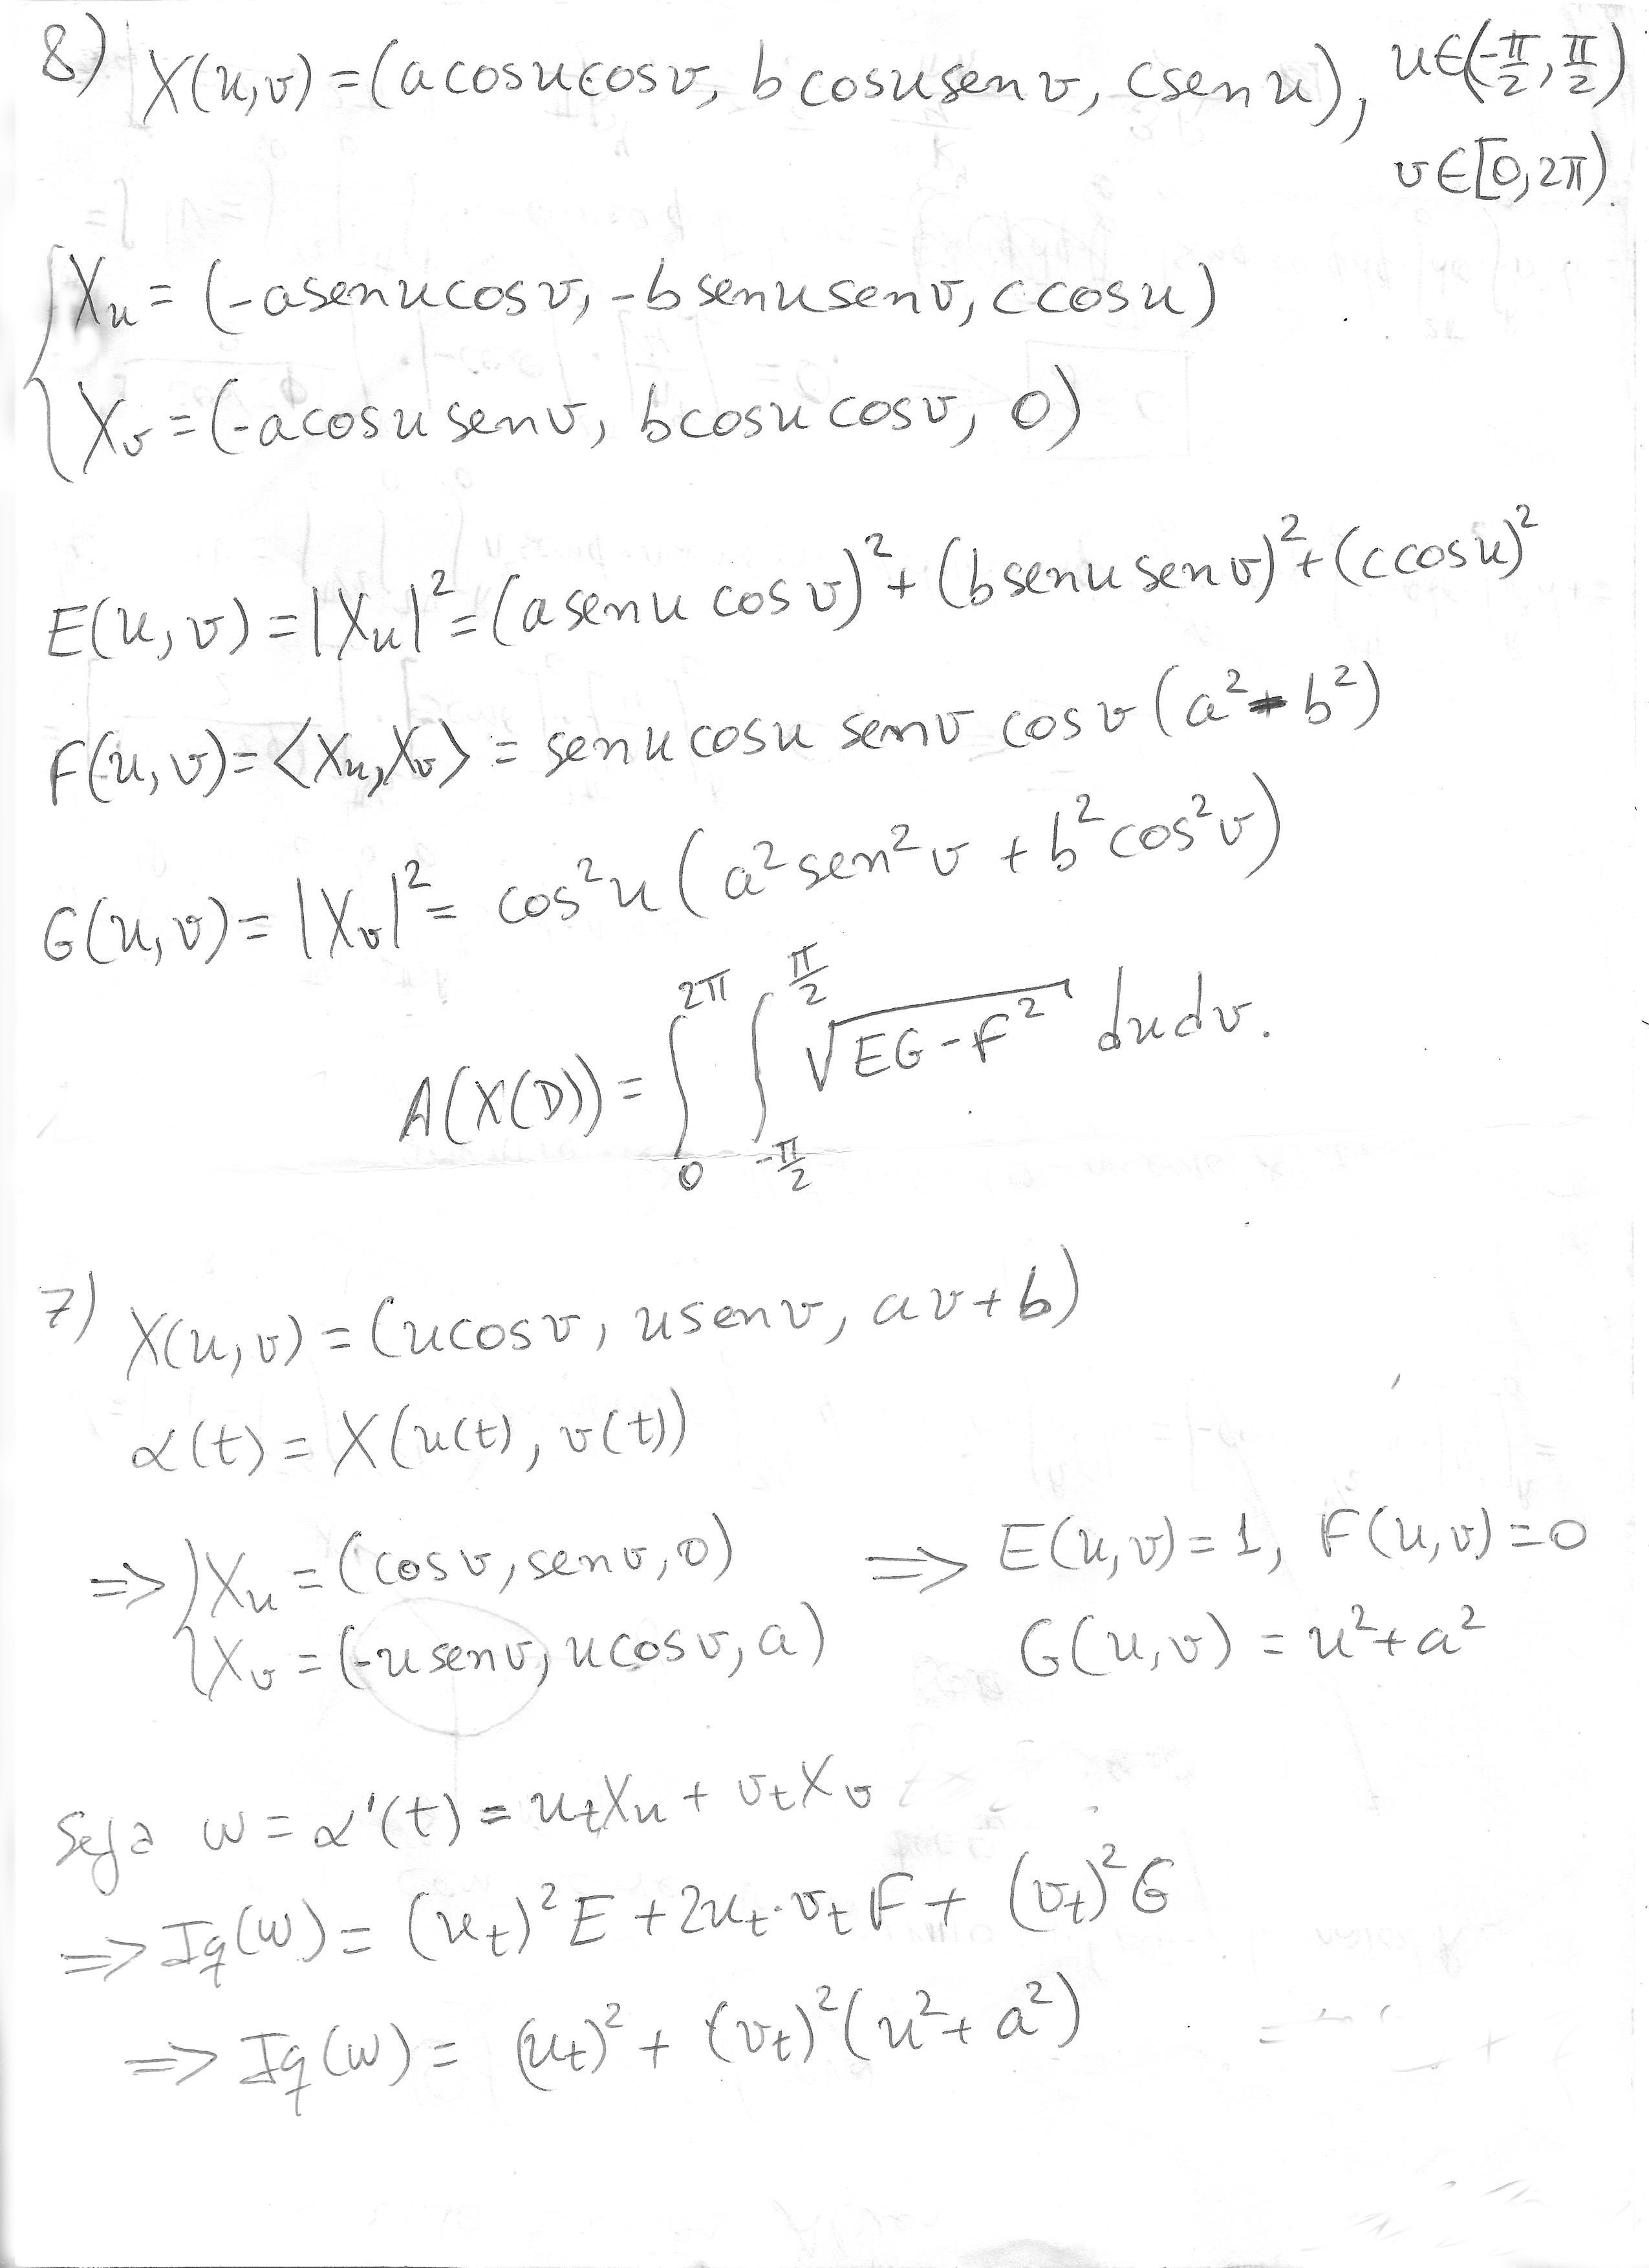 8) X(u,v)=(a cosu cosv, b cosu senv, c senu), u∈(-π/2, π/2)
v∈[0,2π).
Xu = (-a senu cosv, -b senu senv, c cosu)
Xv = (-a cosu senv, b cosu cosv, 0)
E(u,v) = |Xu|² = (a senu cosv)² + (b senu senv)² + (c cosu)²
F(u,v) = <Xu,Xv> = senu cosu senv cosv (a² - b²)
G(u,v) = |Xv|² = cos²u (a² sen²v + b² cos²v)
A(X(D)) = ∫_0^{2π} ∫_{-π/2}^{π/2} √(EG-F²) du dv.
7) X(u,v) = (u cosv, u senv, av+b)
α(t) = X(u(t), v(t))
=> { Xu = (cosv, senv, 0) => E(u,v)=1, F(u,v)=0
Xv = (-u senv, u cosv, a) G(u,v) = u²+a²
Seja w = α'(t) = u_t Xu + v_t Xv
=> Iq(w) = (u_t)² E + 2u_t·v_t F + (v_t)² G
=> Iq(w) = (u_t)² + (v_t)² (u²+a²)